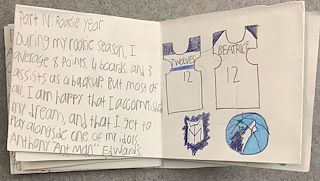 Part IV: Rookie year
During my rookie season, I
average 8 points, 4 boards, and 3
assists as a backup. But most of
all, I am happy that I accomplished
my dream, and that I get to
Play alongside one of my idols,
Anthony "Ant man" Edwards.
TWOLVES
12
BEATRICE
12